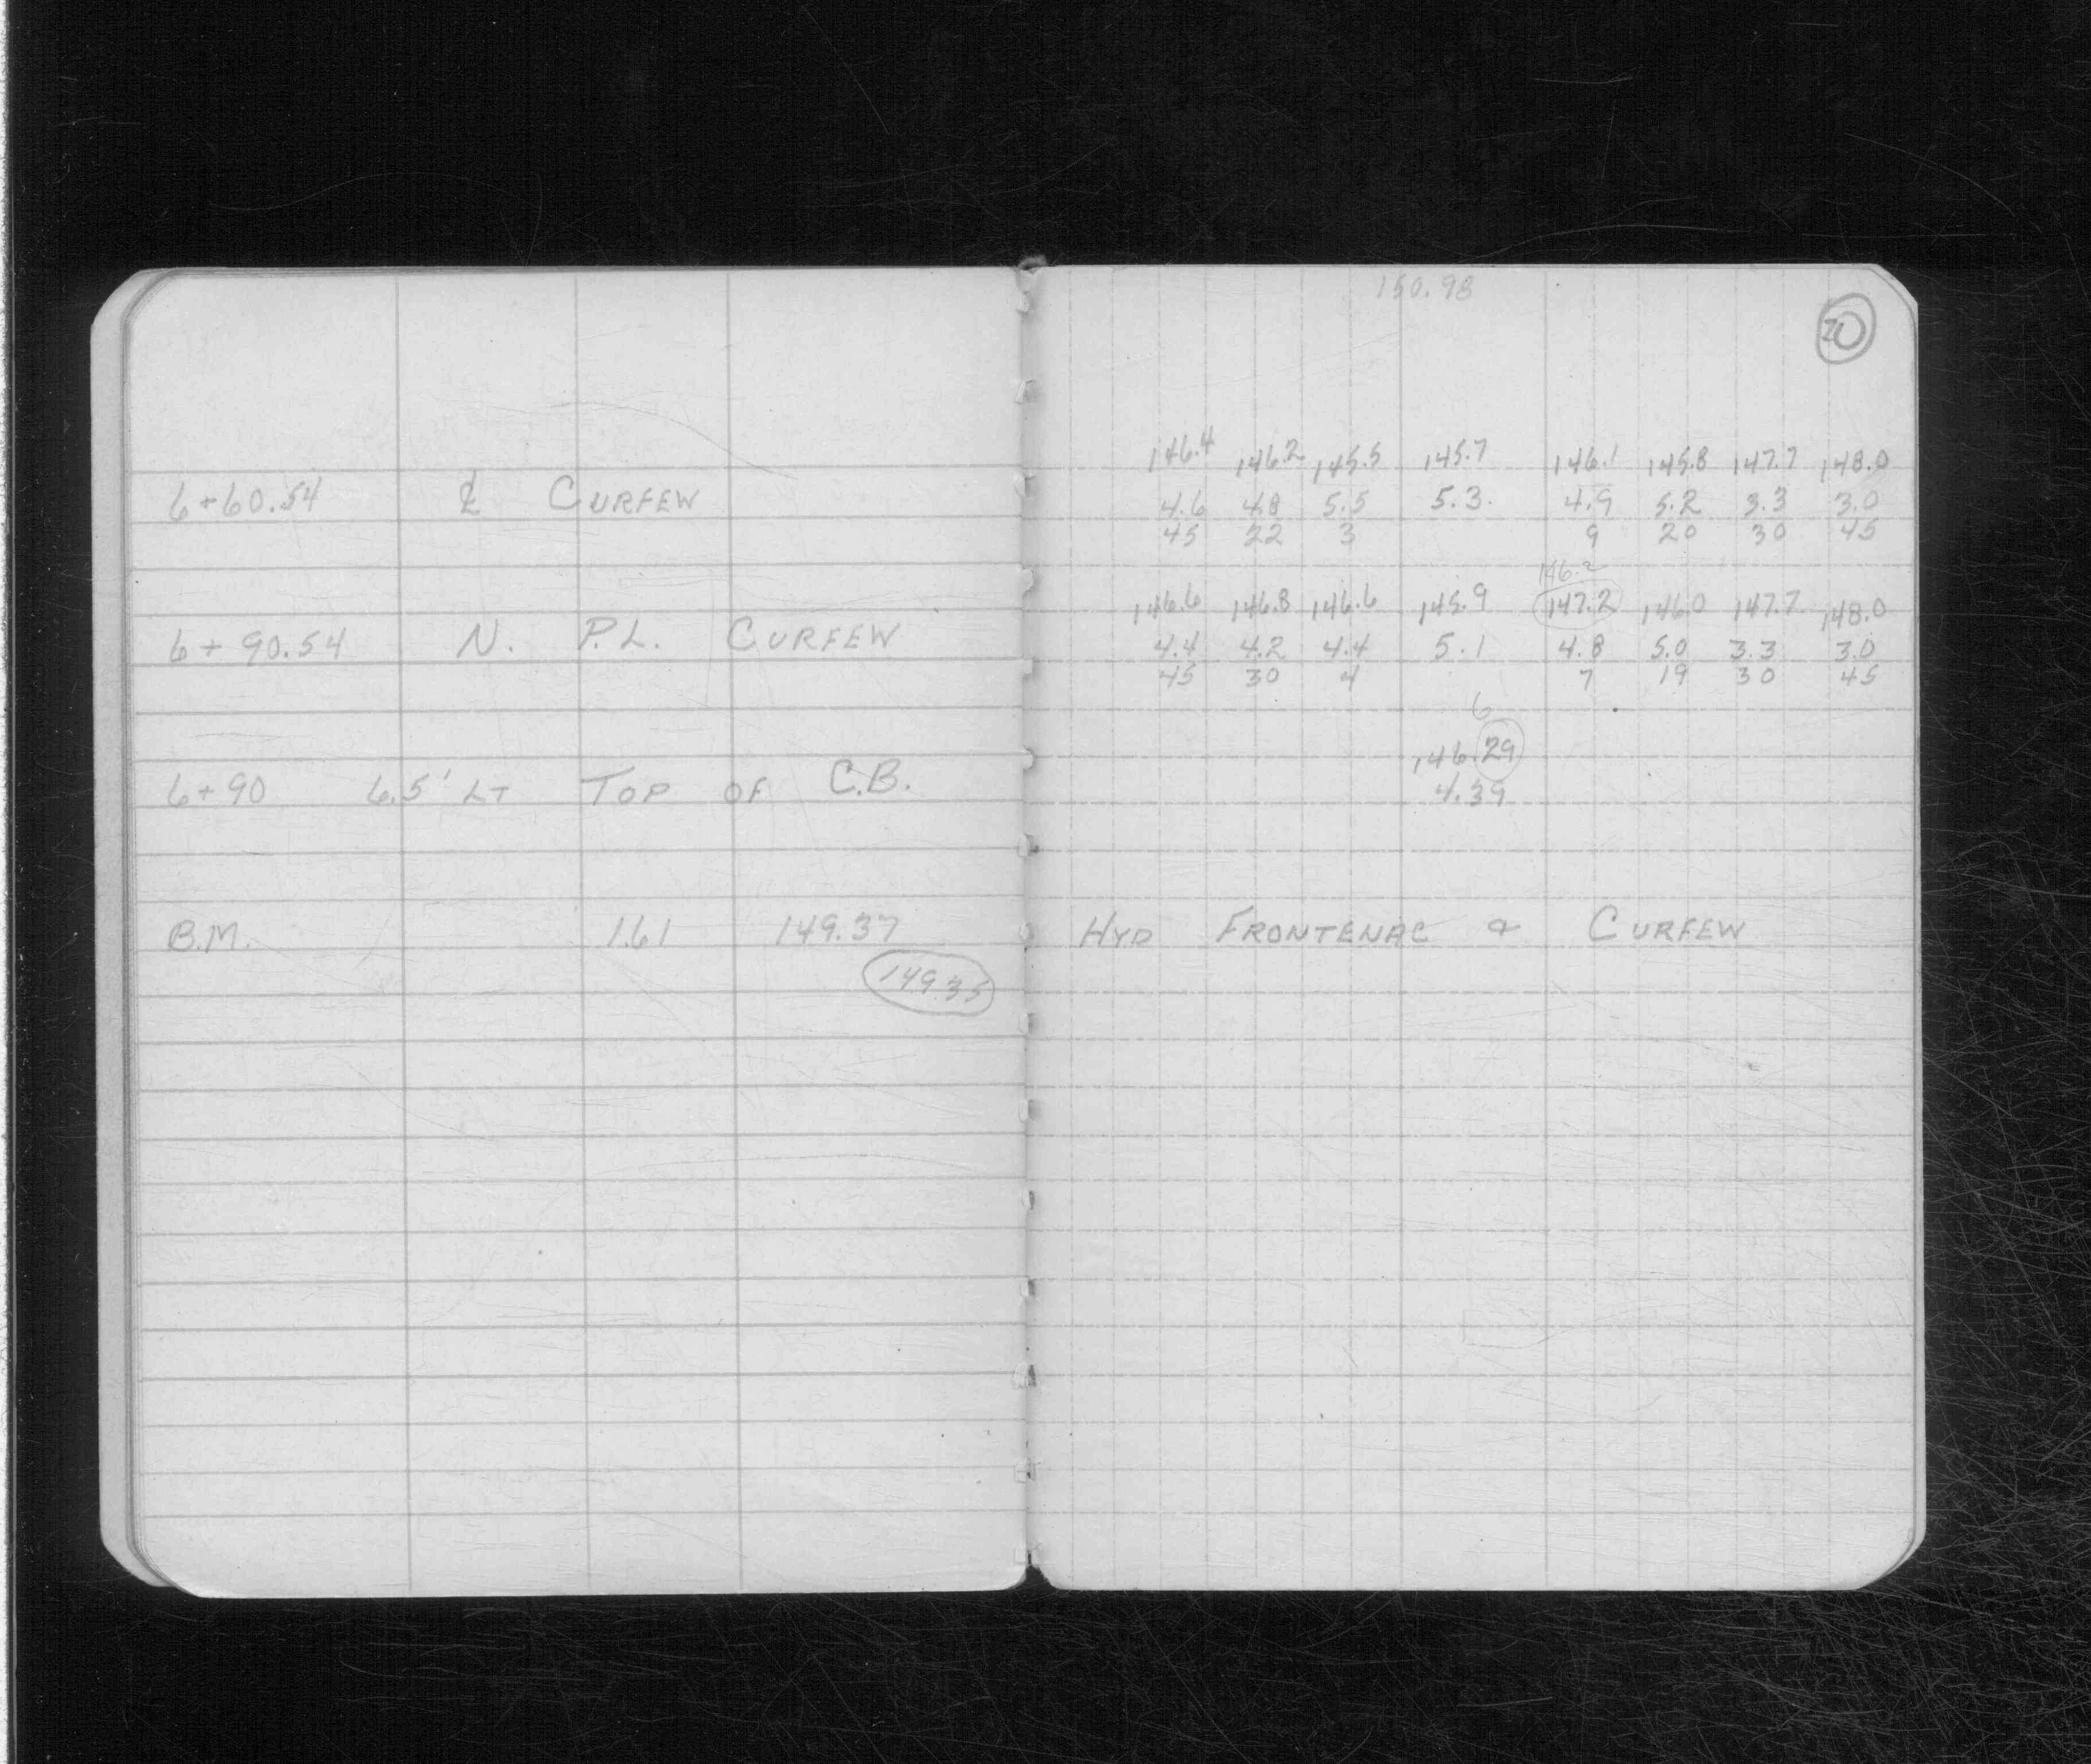 6+60.54 ℄ CURFEW
6+90.54 N. P.L. CURFEW
6+90 6.5' LT TOP OF C.B.
B.M. 1.61 149.37
149.35
150.98
20
146.4 146.2 145.5 145.7 146.1 145.8 147.7 148.0
4.6 4.8 5.5 5.3. 4.9 5.2 3.3 3.0
45 22 3 9 20 30 45
146.2
146.6 146.8 146.6 145.9 147.2 146.0 147.7 148.0
4.4 4.2 4.4 5.1 4.8 5.0 3.3 3.0
45 30 4 7 19 30 45
6
146.29
4.39
HYD FRONTENAC & CURFEW